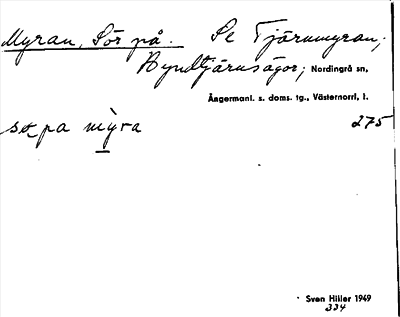 Myran, Sör på. Se Tjärnmyran;
Byndtjärnsågor; Nordingrå sn,
Ångermanl. s. doms. tg., Västernorrl. l.
pa mỳra 275
Sven Hiller 1949
334